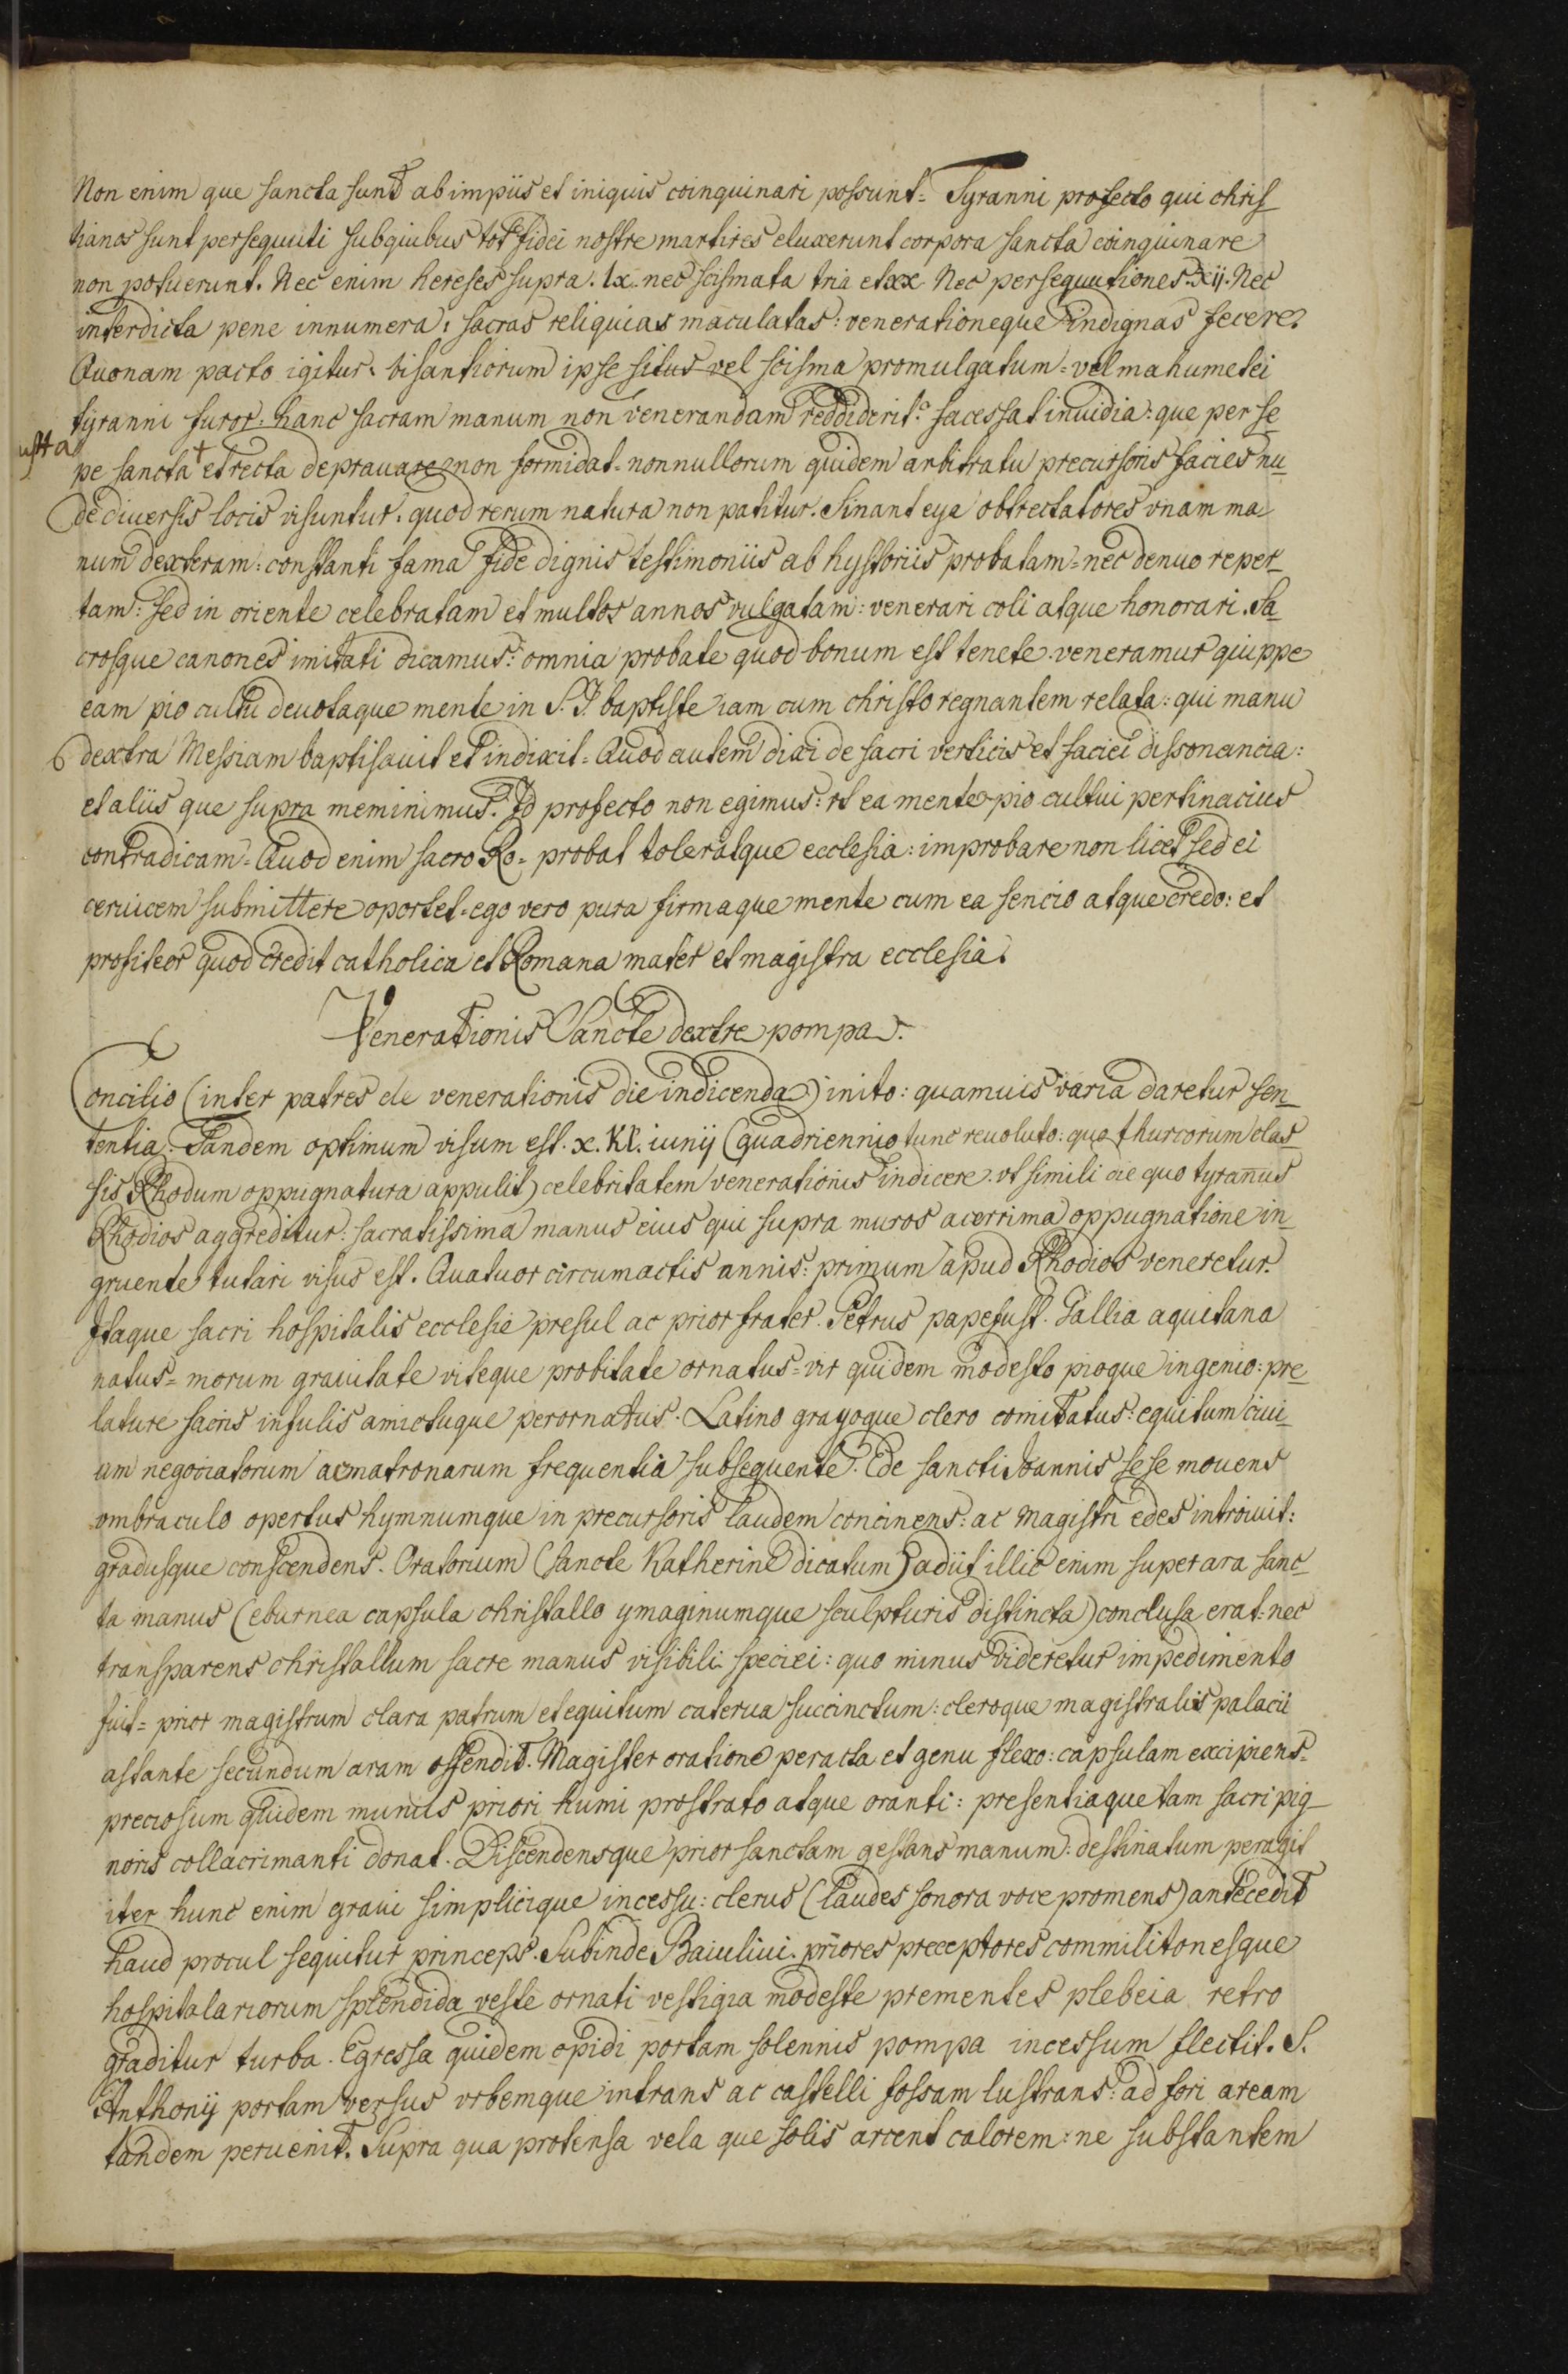 Non enim que sancta sunt ab impiis et iniquis coinquinari possunt = Tyranni profecto qui chris_
tianos sunt persequuti subquibus tot fidei nostre martires eluxerunt corpora sancta coinquinare
non potuerunt. Nec enim hereses supra . lx. nec scismata tria et xx. Nec persequutiones . xij. Nec
interdicta pene innumera : sacras reliquias maculatas : venerationeque indignas fecere.
Quonam pacto igitur. bisantiorum ipse situs vel scisma promulgatum = vel mahumetei
tyranni furor : hanc sacram manum non venerandam reddiderit? facessat inuidia : que per se_
usta
pe sancta + et recta deprauare non formidat = nonnullorum quidem arbitratu precursoris facies nu_
de diuersis locis visuntur : quod rerum natura non patitur. Sinant eya obtrectatores vnam ma_
num dexteram : constanti fama fide dignis testimoniis ab hystoriis probatam = nec denuo reper_
tam : sed in oriente celebratam et multos annos vulgatam : venerari coli atque honorari. Sa_
crosque canones imitati dicamus : omnia probate quod bonum est tenete. veneramur quippe
eam pio cultu deuotaque mente in S. J. baptiste iam cum christo regnantem relata : qui manu
dextra Messiam baptisauit et indixit = Quod autem dixi de sacri verticis et faciei dissonancia :
et aliis que supra meminimus. Id profecto non egimus : vt ea mente pio cultui pertinacius
contradicam = Quod enim sacro Ro = probat toleratque ecclesia : improbare non licet sed ei
ceruicem submittere oportet = ego vero pura firmaque mente cum ea sencio atque credo : et
profiteor quod credit catholica et Romana mater et magistra ecclesia.
Venerationis Sancte dextre pompa.
Concilio (inter patres de venerationis die indicenda) inito : quamuis varia daretur sen_
tentia : Tandem optimum visum est . x. Kl. iunij (quadriennio tunc reuoluto : quo thurcorum clas_
sis Rhodum oppugnatura appulit) celebritatem venerationis indicere. vt simili die quo tyrannus
Rhodios aggreditur : sacratissima manus eius qui supra muros acerrima oppugnatione in_
gruente tutari visus est. Quatuor circumactis annis : primum apud Rhodios veneretur.
Itaque sacri hospitalis ecclesie presul ac prior frater. Petrus papefust. Gallia aquitana
natus = morum grauitate viteque probitate ornatus = vir quidem modesto pioque ingenio : pre_
lature sacris infulis amictuque perornatus. Latino grayoque clero comitatus : equitum ciui_
um negociatorum ac matronarum frequentia subsequente. Ede sancti Ioannis sese mouens
ombraculo opertus hymnumque in precursoris laudem concinens : ac Magistri edes introiuit :
gradusque conscendens. Oratorium (sancte Katherine dicatum) adiit illic enim super ara sanc_
ta manus (eburnea capsula christallo ymaginumque sculpturis distincta) conclusa erat : nec
transparens christallum sacre manus visibili speciei : quo minus videretur impedimento
fuit = prior magistrum clara patrum et equitum caterua succinctum : cleroque magistralis palacii
astante secundum aram offendit. Magister oratione peracta et genu flexo : capsulam excipiens =
preciosum quidem munus priori humi prostrato atque oranti : presentiaque tam sacri pig_
noris collacrimanti donat. Discendensque prior sanctam gestans manum : destinatum peragit
iter hunc enim graui simplicique incessu : clerus (laudes sonora voce promens) antecedit
haud procul sequitur princeps. Subinde Baiuliui. priores preceptores commilitonesque
hospitalariorum splendida veste ornati vestigia modeste prementes plebeia retro
graditur turba. Egressa quidem opidi portam solennis pompa incessum flectit. S.
Anthonij portam versus vrbemque intrans ac castelli fossam lustrans : ad fori aream
tandem peruenit. Supra qua protensa vela que solis arcent calorem : ne substantem